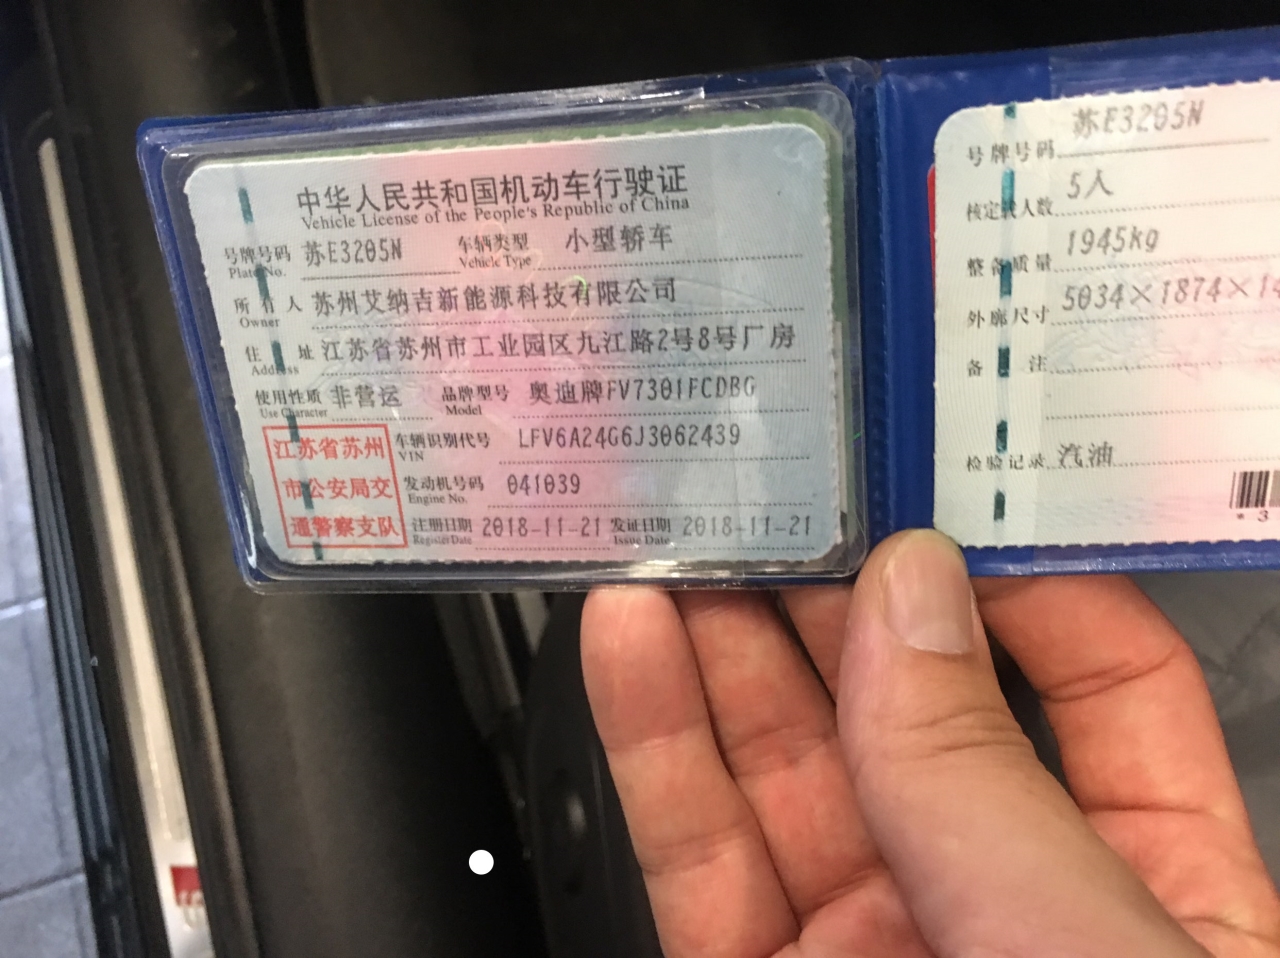 中华人民共和国机动车行驶证
Vehicle License of the People's Republic of China
号牌号码 苏E3205N 车辆类型 小型轿车
Plate No. Vehicle Type
所有人 苏州艾纳吉新能源科技有限公司
Owner
住址 江苏省苏州市工业园区九江路2号8号厂房
Address
使用性质 非营运 品牌型号 奥迪牌FV7301FCDBG
Use Character Model
江苏省苏州
市公安局交
通警察支队
车辆识别代号 LFV6A24G6J3062439
VIN
发动机号码 041039
Engine No.
注册日期 2018-11-21 发证日期 2018-11-21
Register Date Issue Date
号牌号码 苏E3205N
核定载人数 5人
整备质量 1945kg
外廓尺寸 5034×1874×14
备注
检验记录 汽油
* 3